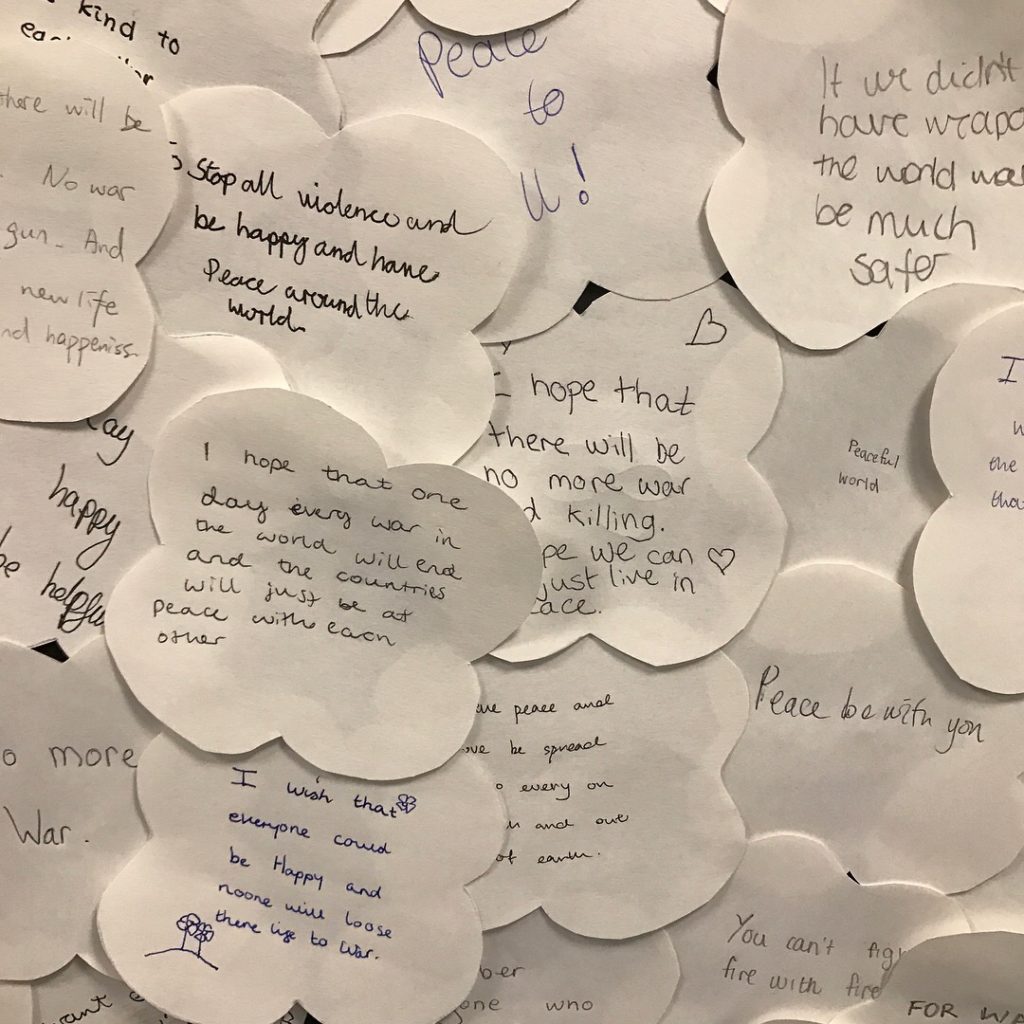 kind to
there will be
No war
gun. And
new life
nd happeniss.
Stop all violence and
be happy and have
Peace around the
world.
Peace
to
U!
If we didn't
have weapo
the world wou
be much
safer
ay
happy
be helpfu
I hope that one
day every war in
the world will end
and the countries
will just be at
peace with each
other
I hope that
there will be
no more war
d killing.
pe we can
just live in
eace.
Peaceful
world
I
w
the
tha
Peace be with you
o more
War.
I wish that
everyone could
be Happy and
noone will loose
there life to War.
ve peace and
ove be spread
o every on
n and out
of earth.
You can't figh
fire with fire
ber
one who
want
FOR WA